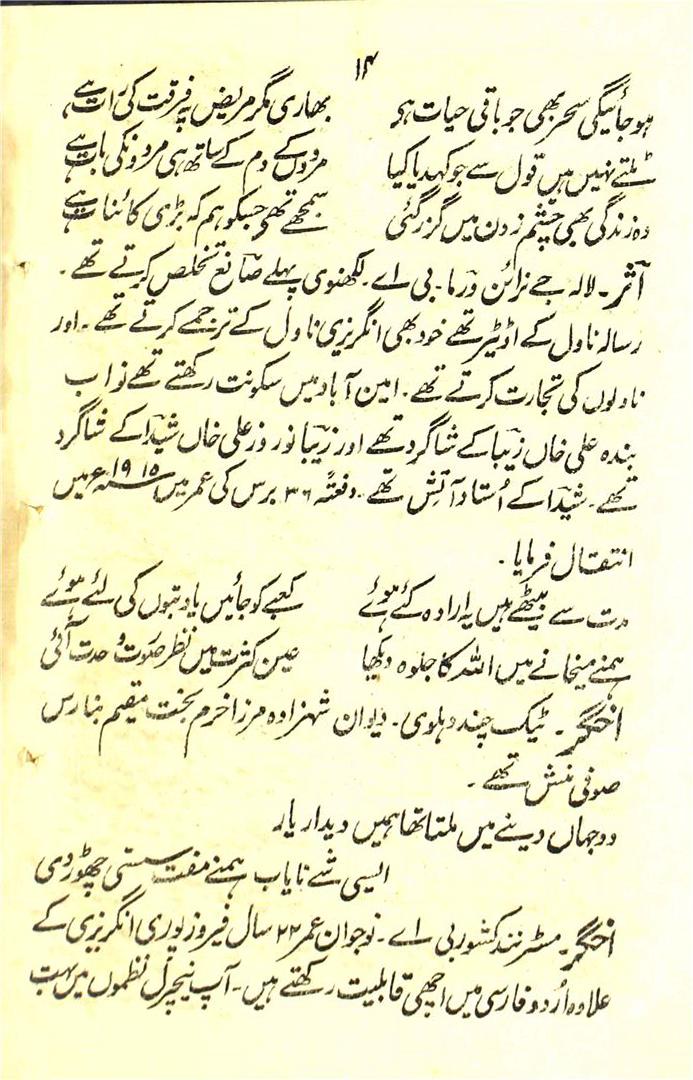 ۱۴
ہو جائیگی سحر بھی جو باقی حیات ہو بھاری مگر مریض پہ فرقت کی رات ہے
ٹلتے نہیں ہیں قول سے جو کہدیا کیا مردوں کے دم کے ساتھ ہی مردونکی بات ہے
وہ زندگی بھی چشم زدن میں گزر گئی سمجھے تھے جسکو ہم کہ بڑی کائنات ہے
آثر۔ لالہ جے نرائن ورما۔ بی اے۔ لکھنوی پہلے صانع تخلص کرتے تھے۔
رسالہ ناول کے اڈیٹر تھے خود بھی انگریزی ناول کے ترجمے کرتے تھے۔ اور
ناولوں کی تجارت کرتے تھے۔ امین آباد میں سکونت رکھتے تھے نواب
بندہ علی خاں زیبا کے شاگرد تھے اور زیبا نوروز علی خاں شیدا کے شاگرد
تھے۔ شیدا کے اُستاد آتش تھے۔ دفعتہً ۳۶ برس کی عمر میں ۱۹۱۵ء میں
انتقال فرمایا۔
مدت سے بیٹھے ہیں یہ ارادہ کئے ہوئے کعبے کو جائیں یاد بتوں کی لئے ہوئے
ہمنے میخانے میں اللہ کا جلوہ دیکھا عین کثرت میں نظر صورت وحدت آئی
اخگر۔ ٹیک چند دہلوی۔ دیوان شہزادہ مرزا خرم بخت مقیم بنارس
صوفی منش تھے۔
دو جہاں دینے میں ملتا تھا ہمیں دیدار یار
ایسی شے نایاب ہمنے مفت سستی چھوڑ دی
اخگر۔ مسٹر نند کشور بی اے۔ نوجوان عمر ۲۲ سال فیروزپوری انگریزی کے
علاوہ اُردو فارسی میں اچھی قابلیت رکھتے ہیں۔ آپ نیچرل نظموں میں بہت